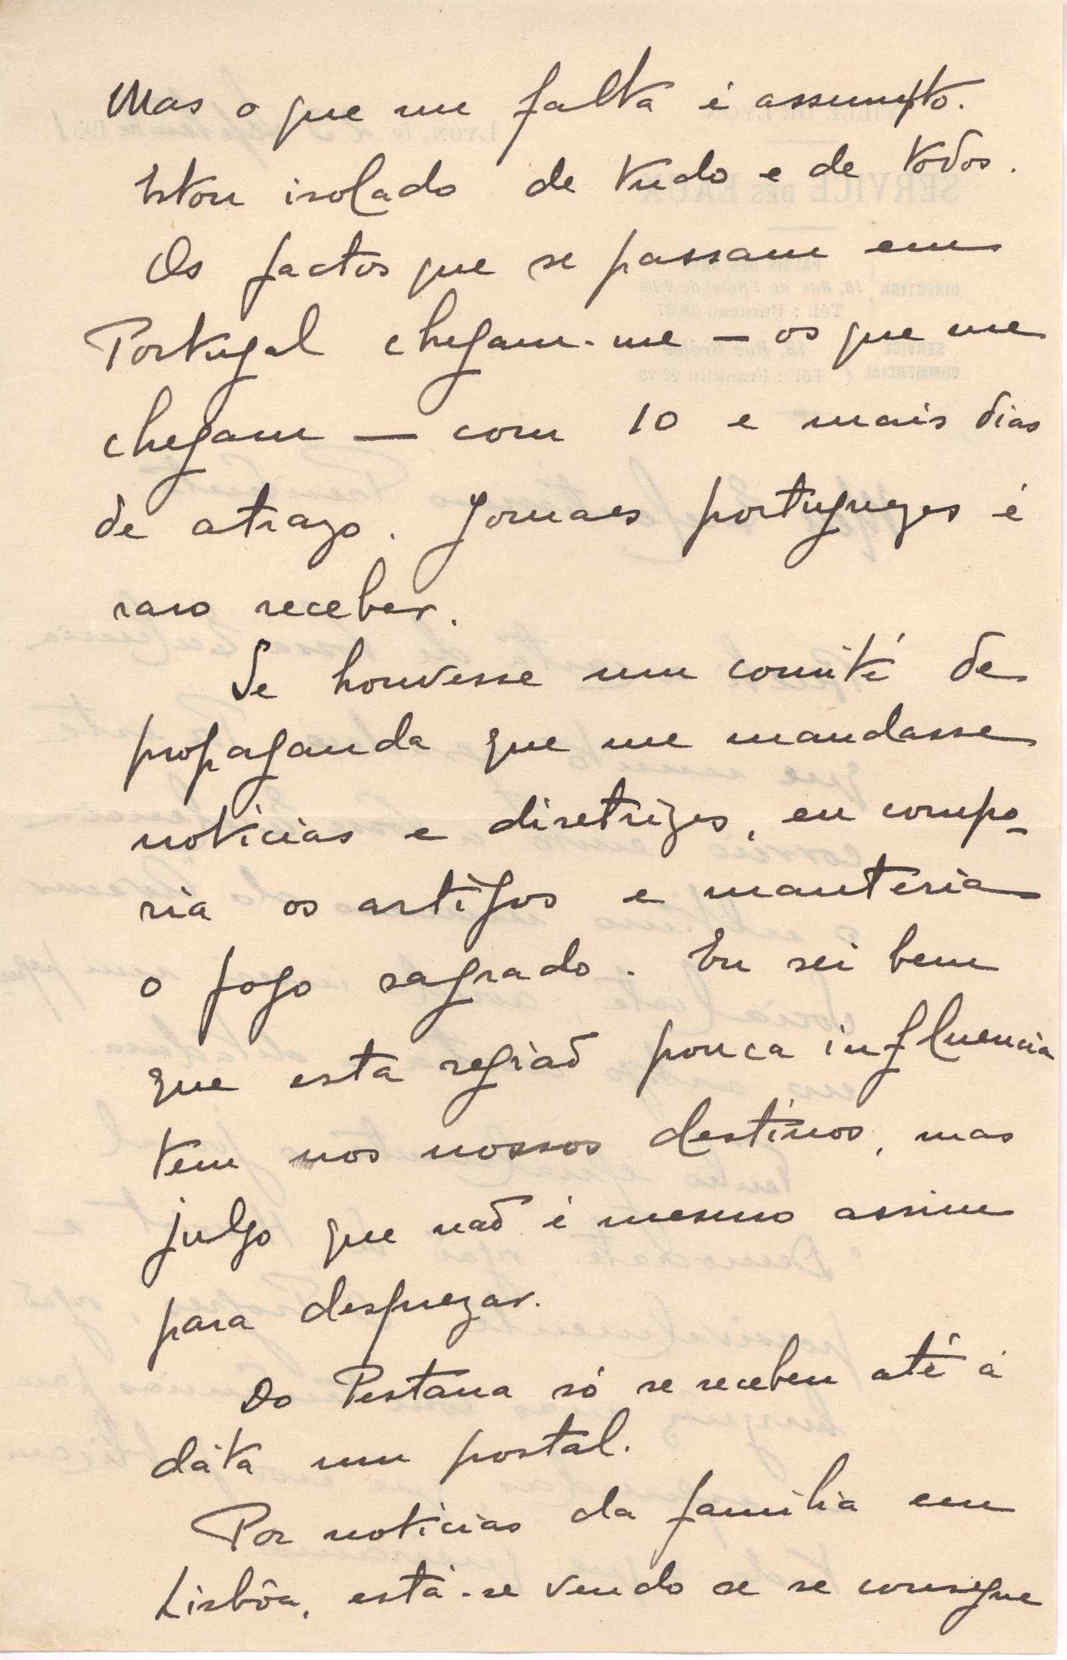 Mas o que me falta é assumpto.
Estou isolado de tudo e de todos.
Os factos que se passam em
Portugal chegam-me — os que me
chegam — com 10 e mais dias
de atrazo. Jornaes portuguezes é
raro receber.
Se houvesse um comité de
propaganda que me mandasse
noticias e diretrizes, eu compo-
ria os artigos e manteria
o fogo sagrado. Eu sei bem
que esta região pouca influencia
tem nos nossos destinos, mas
julgo que não é mesmo assim
para desprezar.
Do Pestana só se recebeu até á
dáta um postal.
Por noticias da familia em
Lisbôa, está-se vendo se se consegue